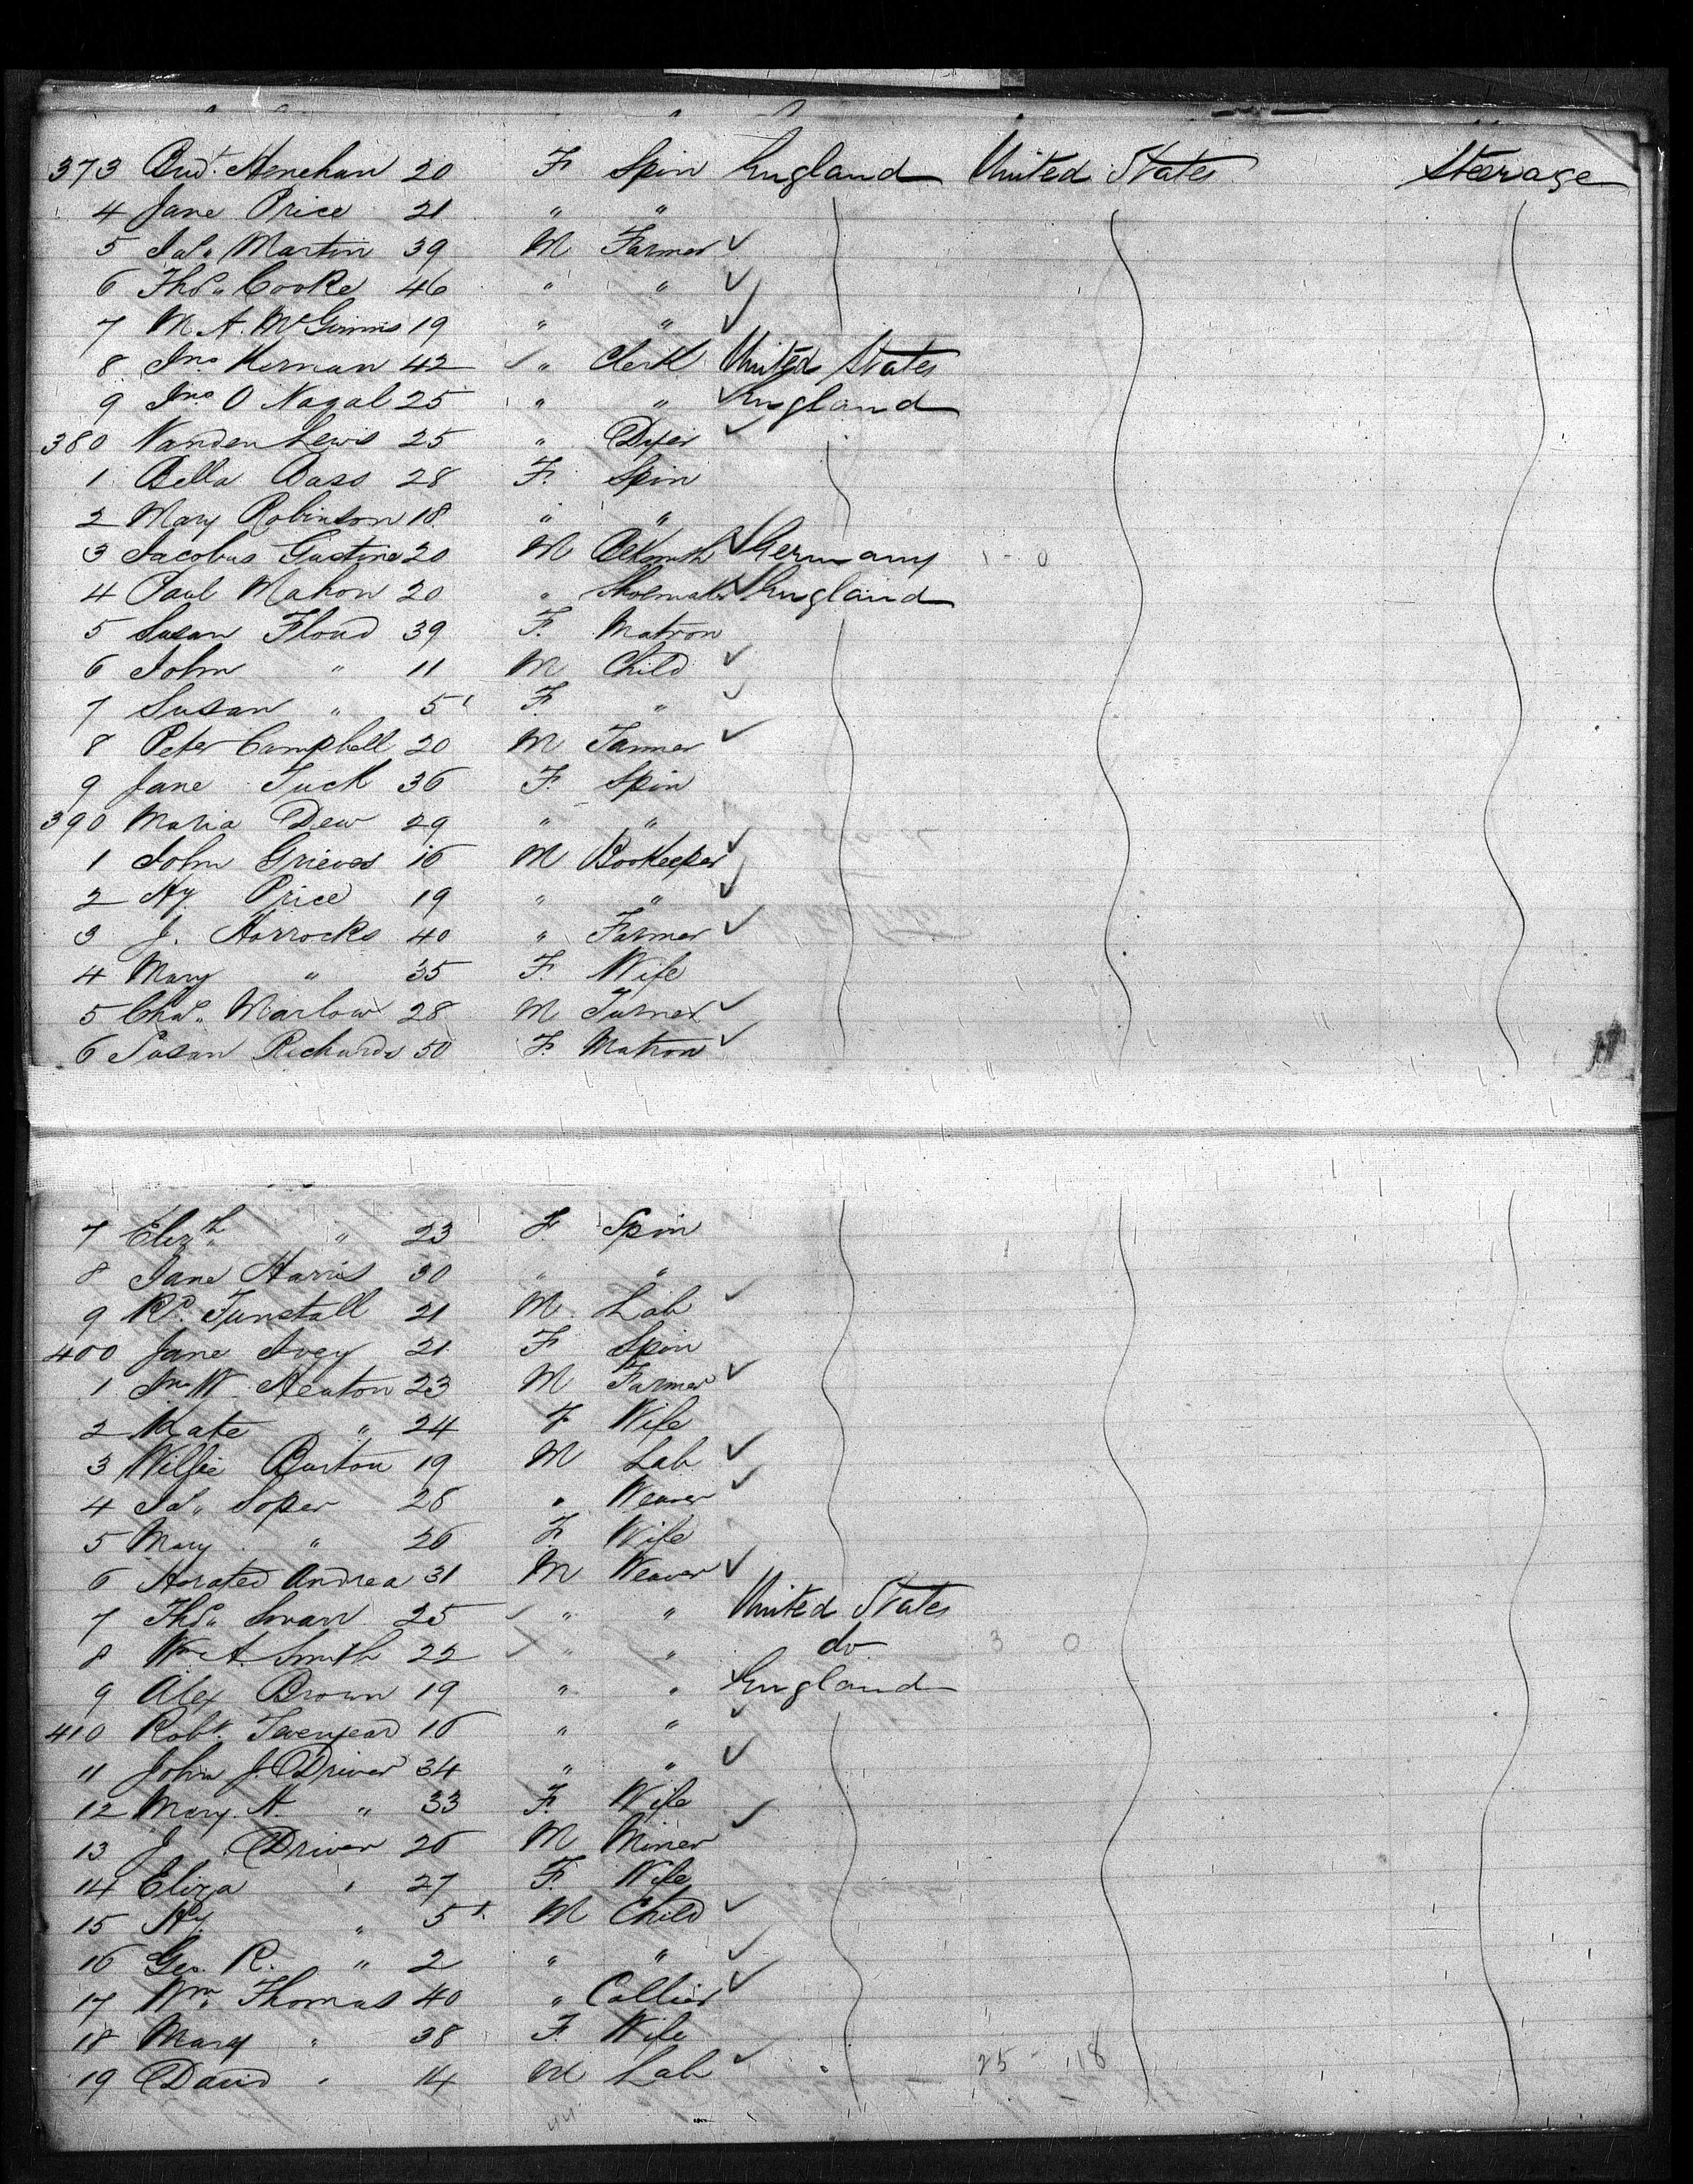 373 Brid.t Henehan 20 F Spin England United States Steerage
4 Jane Price 21 " "
5 Jas. Martin 39 M Farmer ✓
6 Thos. Cooke 46 " " ✓
7 M. A. McGinnis 19 " " ✓
8 Jno. Kernan 42 ✓ " Clerk United States
9 Jno. O Nagal 25 " " ✓ England
380 Vanden Lewis 25 " Dyer ✓
1 Bella Bass 28 F. Spin
2 Mary Robinson 18 " "
3 Jacobus Gustine 20 M Blksmith ✓ Germany 1 - 0
4 Paul Mahon 20 " Shoemaker ✓ England
5 Susan Floud 39 F. Matron
6 John " 11 M Child ✓
7 Susan " 5 F. " ✓
8 Peter Campbell 20 M Farmer ✓
9 Jane Tuck 36 F. Spin
390 Maria Dew 29 " "
1 John Grieves 16 M Bookeeper ✓
2 Hy. Price 19 " " ✓
3 J. Horrocks 40 " Farmer ✓
4 Mary " 35 F. Wife
5 Chas. Marlow 28 M Turner ✓
6 Susan Richards 50 F. Matron ✓
7 Elizth " 23 F Spin
8 Jane Harris 30 " "
9 Rd. Tunstall 21 M Lab ✓
400 Jane Ivey 21 F Spin
1 Jno W. Heaton 23 M Farmer ✓
2 Kate " 24 F Wife
3 Wilfie Burton 19 M Lab ✓
4 Js. Soper 26 " Weaver ✓
5 Mary " 26 F. Wife
6 Andrea 31 M Weaver ✓
7 Thos. Swan 25 ✓ " " United States
8 Wm A. Smith 22 ✓ " " do 3 0
9 Alex Brown 19 " " ✓ England
410 Robt. 16 " " ✓
11 John J. Driver 34 " " ✓
12 Mary. A. " 33 F. Wife
13 J. Driver 26 M Miner ✓
14 Eliza " 27 F. Wife
15 Hy. " 5 M Child ✓
16 Geo. R. " 2 " " ✓
17 Wm. Thomas 40 " Collier ✓
18 Mary " 38 F. Wife
19 David " 14 M Lab ✓ 25 - 18
44